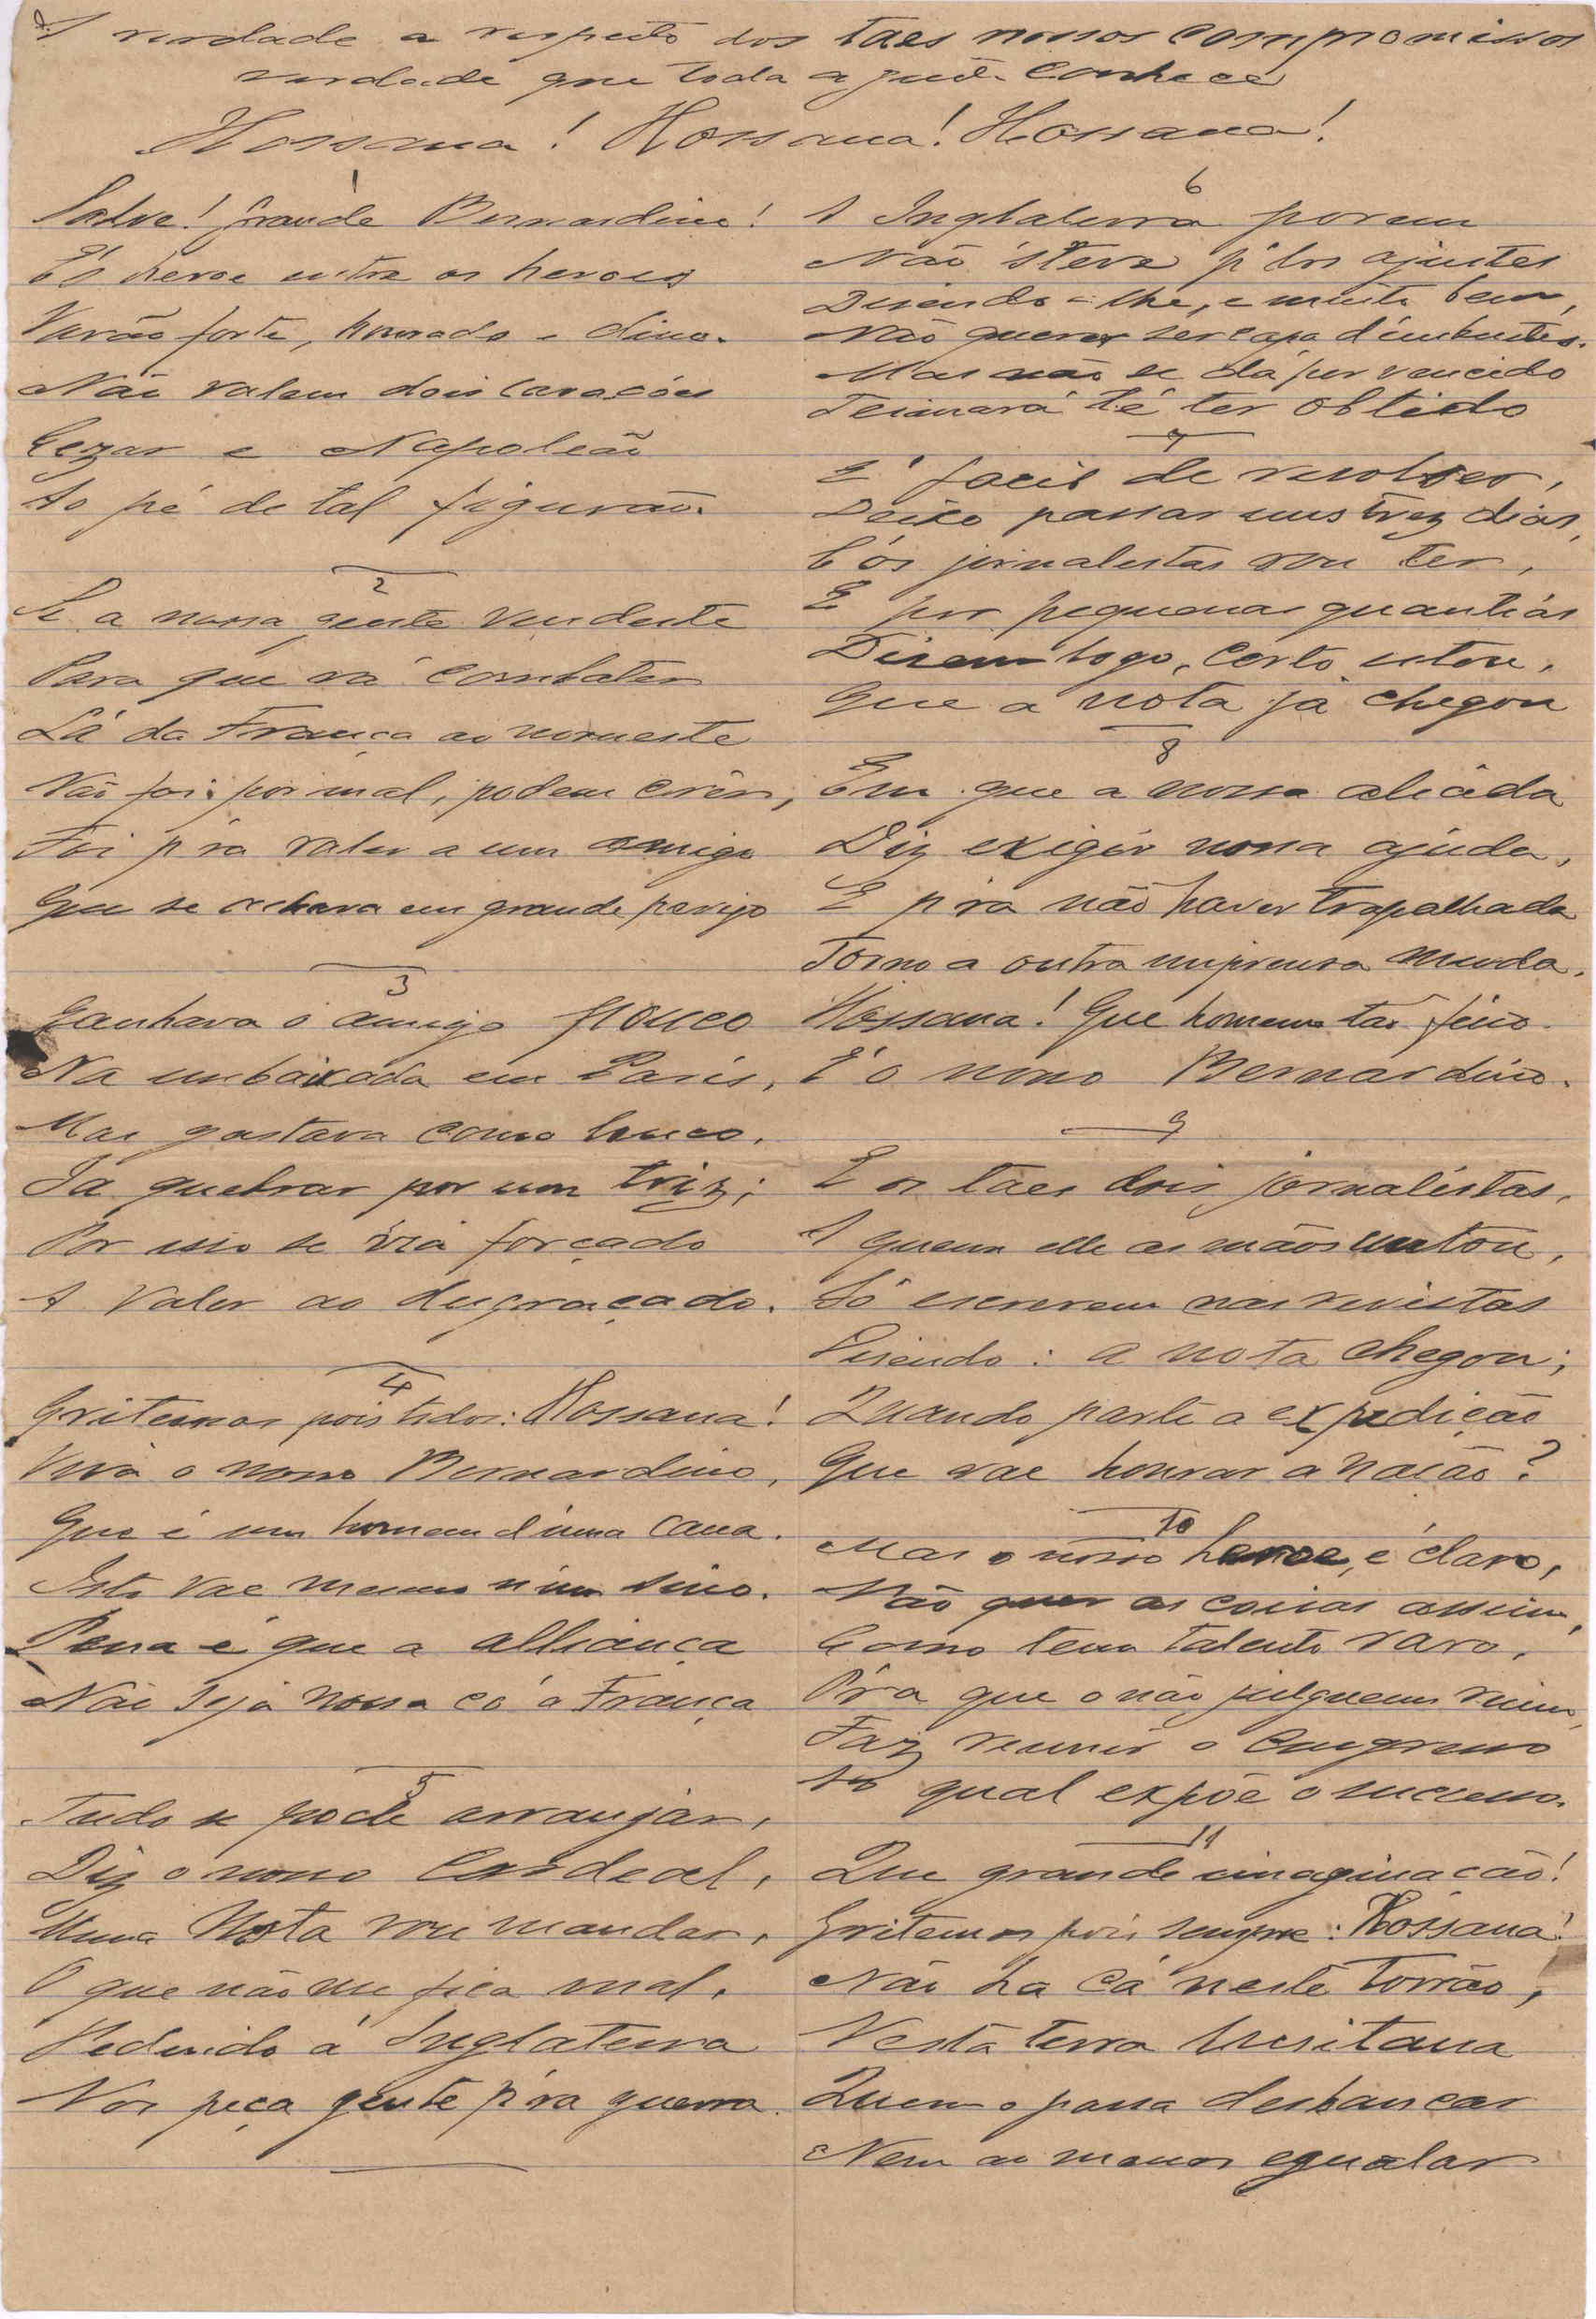 A verdade a respeito dos taes nossos compromissos
verdade que toda a gente conhece
Hossana! Hossana! Hossana!
1
Salve! grande Bernardino!
És heroe entre os heroes
Varão forte, honrado e dino.
Não valem dois caracóes
Cezar e Napoleão
Ao pé de tal figurão.
2
Se a nossa gente vendeste
Para que vá combater
Lá da França ao noroeste
Não foi por mal, podem crêr,
Foi p'ra valer a um amigo
Que se achava em grande perigo
3
Ganhava o amigo pouco
Na embaixada em Paris,
Mas gastava como louco.
Ia quebrar por um triz;
Por isso se via forçado
A valer ao desgraçado.
4
Gritemos pois todos: Hossana!
Viva o nosso Bernardino,
Que é um homem d'uma cana.
Isto vae mesmo n'um sino.
Pena é que a alliança
Não seja nossa co'a França
5
Tudo se pode arranjar,
Diz o nosso Cardeal,
Uma Nota vou mandar,
O que não me fica mal,
Pedindo á Inglaterra
Nos peça gente p'ra guerra.
6
A Inglaterra porem
Não 'steve p'los ajustes
Disendo-lhe, e muito bem,
Não querer ser capa d'embustes.
Mas não se dá por vencido
Teimará 'té ter obtido
7
E' facil de resolver,
Deixo passar uns trez dias,
C'os jornalistas vou ter,
E por pequenas quantias
Disem logo, certo estou,
Que a nota já chegou
8
Em que a nossa aliada
Diz exigir nossa ajuda,
E p'ra não haver trapalhada
Torno a outra imprensa muda.
Hossana! Que homem tão fino
E' o nosso Bernardino.
9
E os taes dois jornalistas,
A quem elle as mãos untou,
Só escrevem nas revistas
Disendo: a nota chegou;
Quando parte a expedição
Que vae honrar a nação?
10
Mas o nosso heroe, é claro,
Não quer as coisas assim,
Como tem talento raro,
P'ra que o não julguem ruim,
Faz reunir o Congresso
Ao qual expõe o sucesso.
11
Que grande imaginacão!
Gritemos pois sempre: Hossana!
Não ha cá neste torrão,
Nesta terra lusitana
Quem o possa desbancar
Nem ao menos egualar